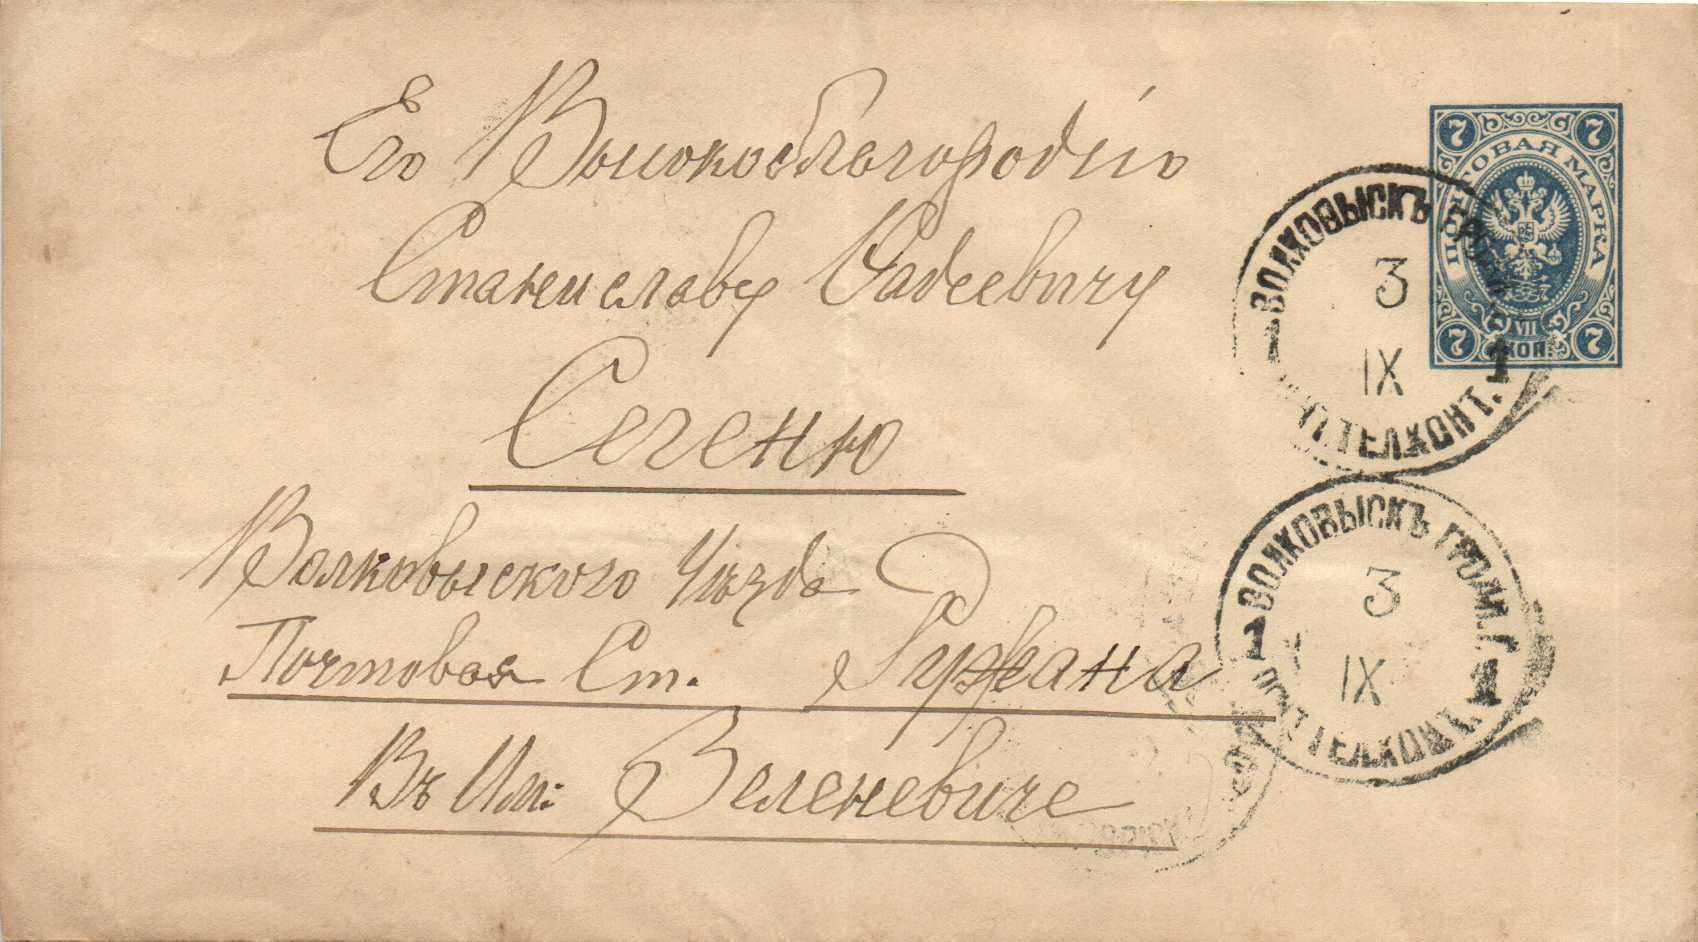 Его Высокоблагородію
Станиславу Фадеевичу
Сегеню
Волковыского Уѣзда
Почтовая Ст. Ружана
Въ Им: Зеленевиче
7 7
ПОЧТОВАЯ МАРКА
VII
7 КОП. 7
ВОЛКОВЫСКЪ ГРОДН. Г.
3
IX
1 1
ПОЧТ ТЕЛ КОНТ.
ВОЛКОВЫСКЪ ГРОДН. Г.
3
IX
1 1
ПОЧТ ТЕЛ КОНТ.